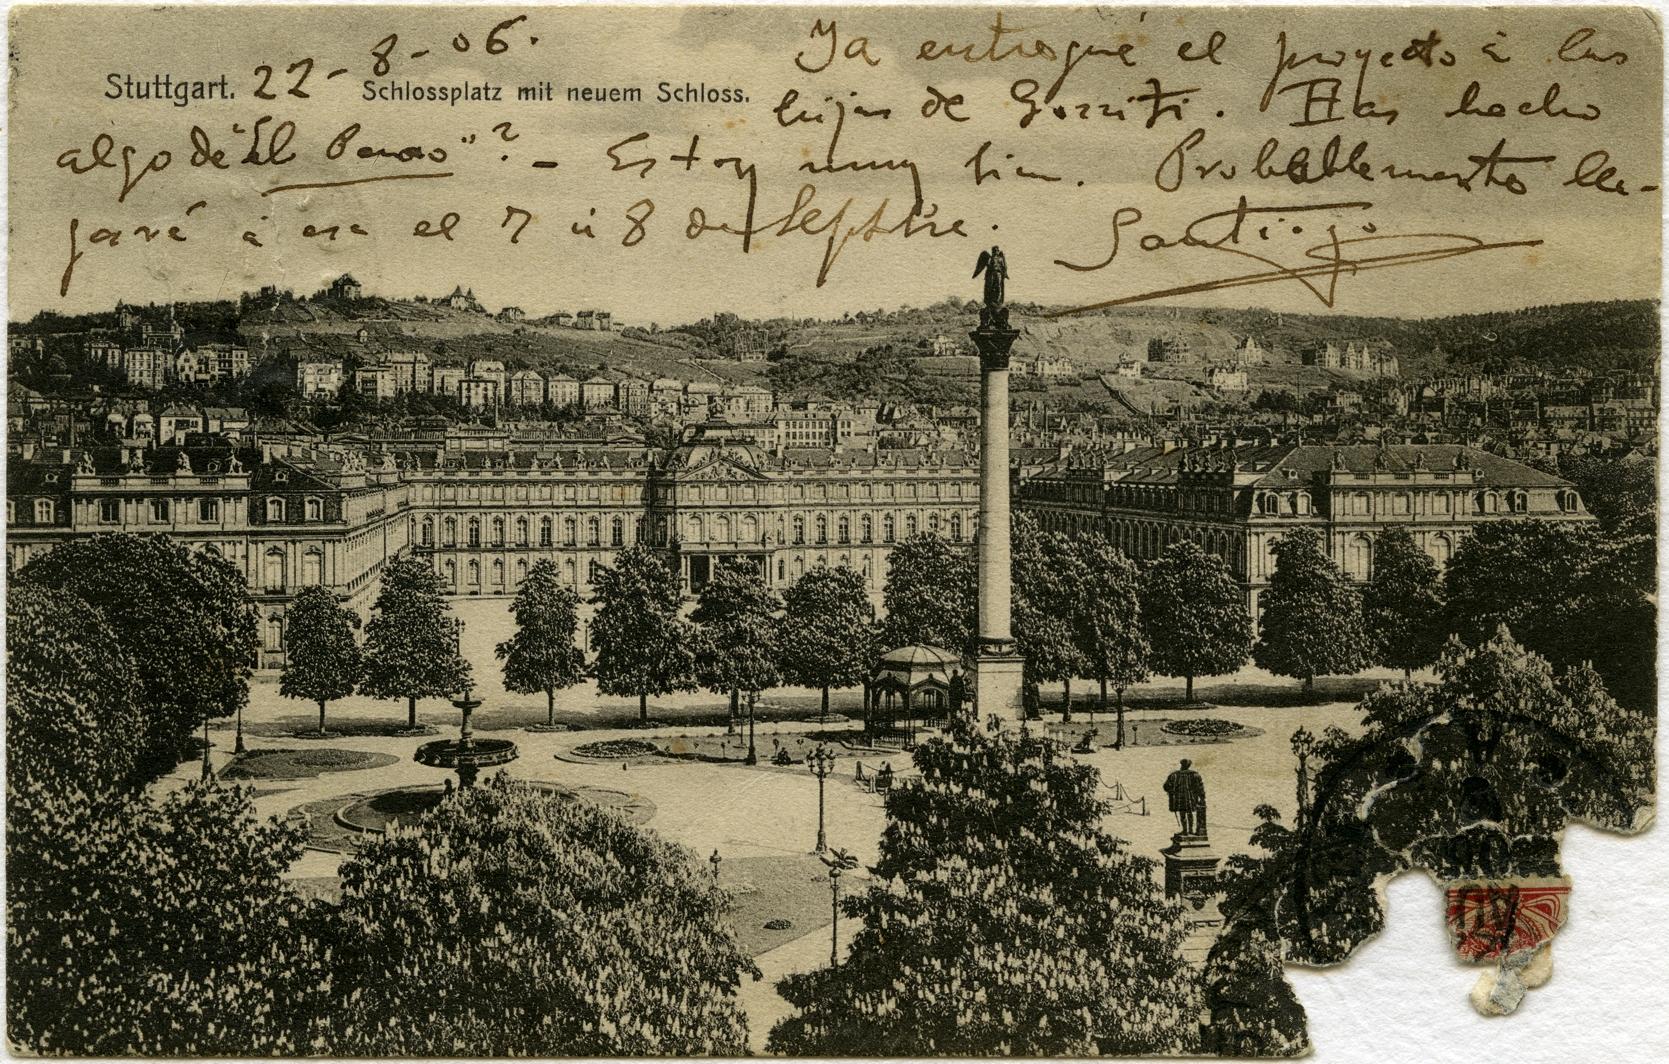 22-8-06.
Stuttgart. Schlossplatz mit neuem Schloss.
Ya entregué el proyecto á las
hijas de Gorriti. Has hecho
algo de "El"? - Estoy muy bien. Probablemente lle-
garé á esa el 7 u 8 de Septbre.
Santiago